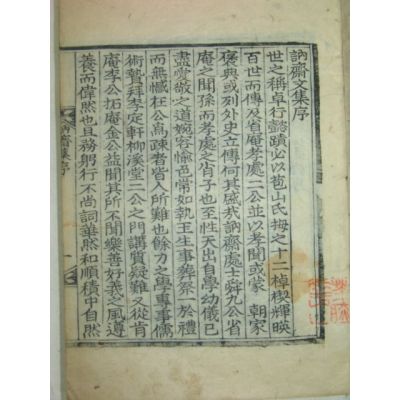 訥齋文集序
世之稱卓行懿蹟必以苞山氏拇之十二棹楔輝暎
百世而傳及省庵孝處二公並以孝聞或蒙 朝家
褒典或列外史立傳何其盛哉訥齋處士舜九公省
庵之聞孫而孝處之肖子也至性天出自學幼儀已
盡愛敬之道婉容愉色常如執玉生事葬祭一於禮
而無憾枉公高疎者皆人所難也餘力之學專事儒
術贄拜李定軒柳溪堂二公之門講質疑難又從肯
庵李公拓庵金公益聞其所不聞樂善好義之風遵
養而偉然也且務躬行不尚詞華然和順積中自然
訥齋集序